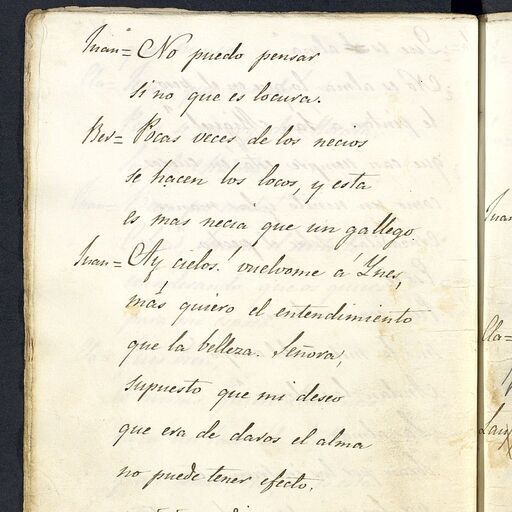 Juan= No puedo pensar
sino que es locura.
Ber= Pocas veces de los necios
se hacen los locos, y esta
es mas necia que un gallego.
Juan= Ay cielos! vuelvome á Ynes,
más quiero el entendimiento
que la belleza. Señora,
supuesto que mi deseo
que era de daros el alma
no puede tener efecto.
Juan
Cla=